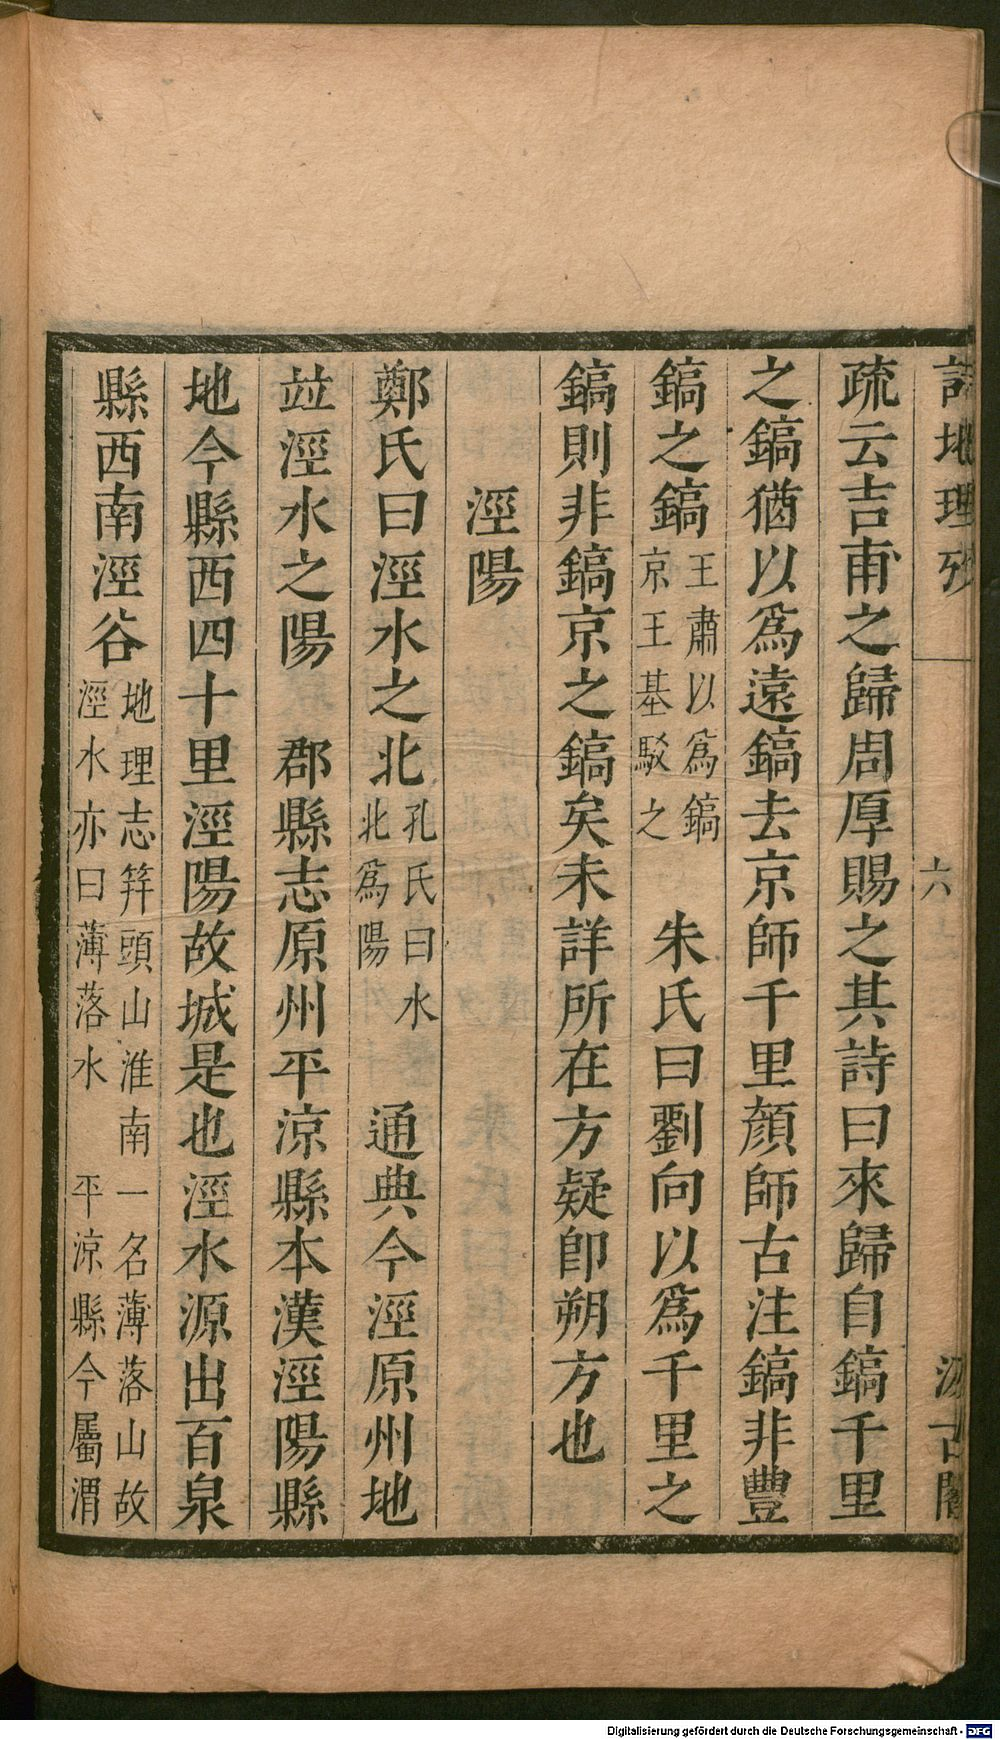 詩地理攷 六 汲古閣
疏云吉甫之歸周厚賜之其詩曰來歸自鎬千里
之鎬猶以爲遠鎬去京師千里顏師古注鎬非豐
鎬之鎬王肅以爲鎬京王基駁之 朱氏曰劉向以爲千里之
鎬則非鎬京之鎬矣未詳所在方疑卽朔方也
涇陽
鄭氏曰涇水之北孔氏曰水北爲陽 通典今涇原州地
竝涇水之陽 郡縣志原州平涼縣本漢涇陽縣
地今縣西四十里涇陽故城是也涇水源出百泉
縣西南涇谷地理志筓頭山淮南一名薄落山故涇水亦曰薄落水 平涼縣今屬渭
Digitalisierung gefördert durch die Deutsche Forschungsgemeinschaft - DFG